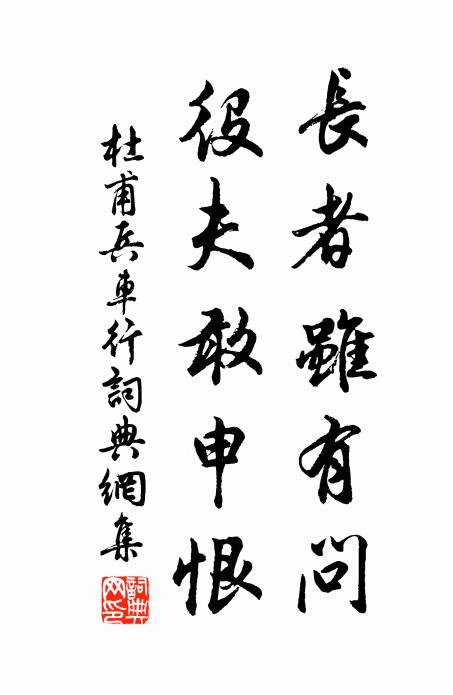 長者雖有問
役夫敢申恨
杜甫兵車行詞典網集
詞典網印